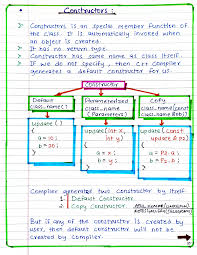 Constructors :
Constructors is an special member function of
the class. It is automatically invoked when
an object is created.
It has no return type.
Constructor has same name as class itself
If we do not specify, then C++ Compiler
generates a default constructor for us
Constructor
Default
class_name()
Parameterized
class_name
(Parameters)
Copy
class_name(const
class_name &ob)
update()
{
a = 20;
}
update(int x,
int y)
{
a = x;
b = y;
}
update(const
update & p2)
{
a = p2.a;
b = p2.b;
}
Compiler generates two constructor by itself.
1. Default Constructor
2. Copy Constructor
But if any of the constructor is created by
user, then default constructor will not
be created by Compiler.